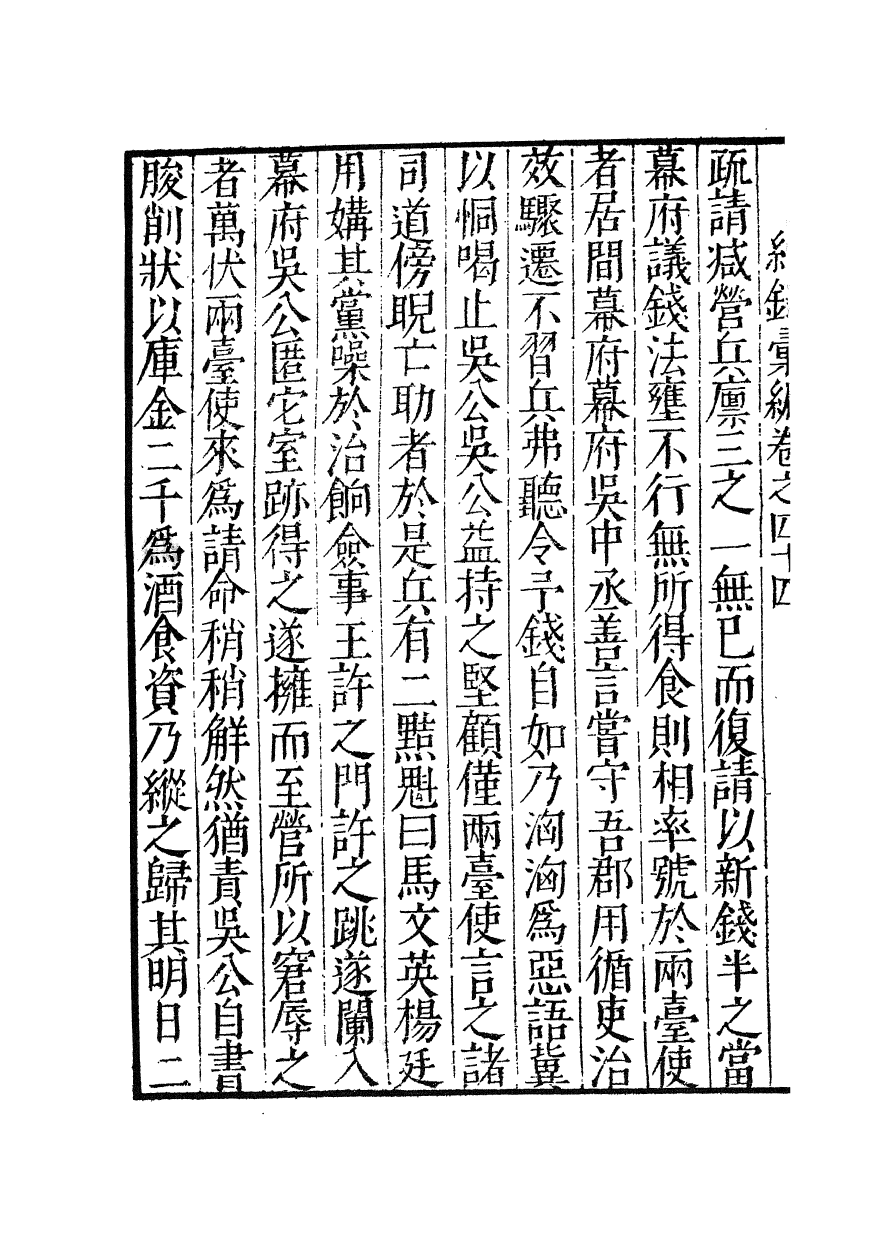 紀錄彙編卷之四十四
疏請減營兵廪三之一無已而復請以新錢半之當
幕府議錢法壅不行無所得食則相率號於兩臺使
者居間幕府幕府吳中丞善言嘗守吾郡用循吏治
效驟遷不習兵弗聽令予錢自如乃洶洶爲惡語冀
以恫喝止吳公吳公益持之堅顧僅兩臺使言之諸
司道傍睨亡助者於是兵有二黠魁曰馬文英楊廷
用媾其黨噪於治餉僉事王許之門許之跳遂闌入
幕府吳公匿它室跡得之遂擁而至營所以窘辱之
者萬伏兩臺使來爲請命稍稍解然猶責吳公自書
朘削狀以庫金二千爲酒食資乃縱之歸其明日二